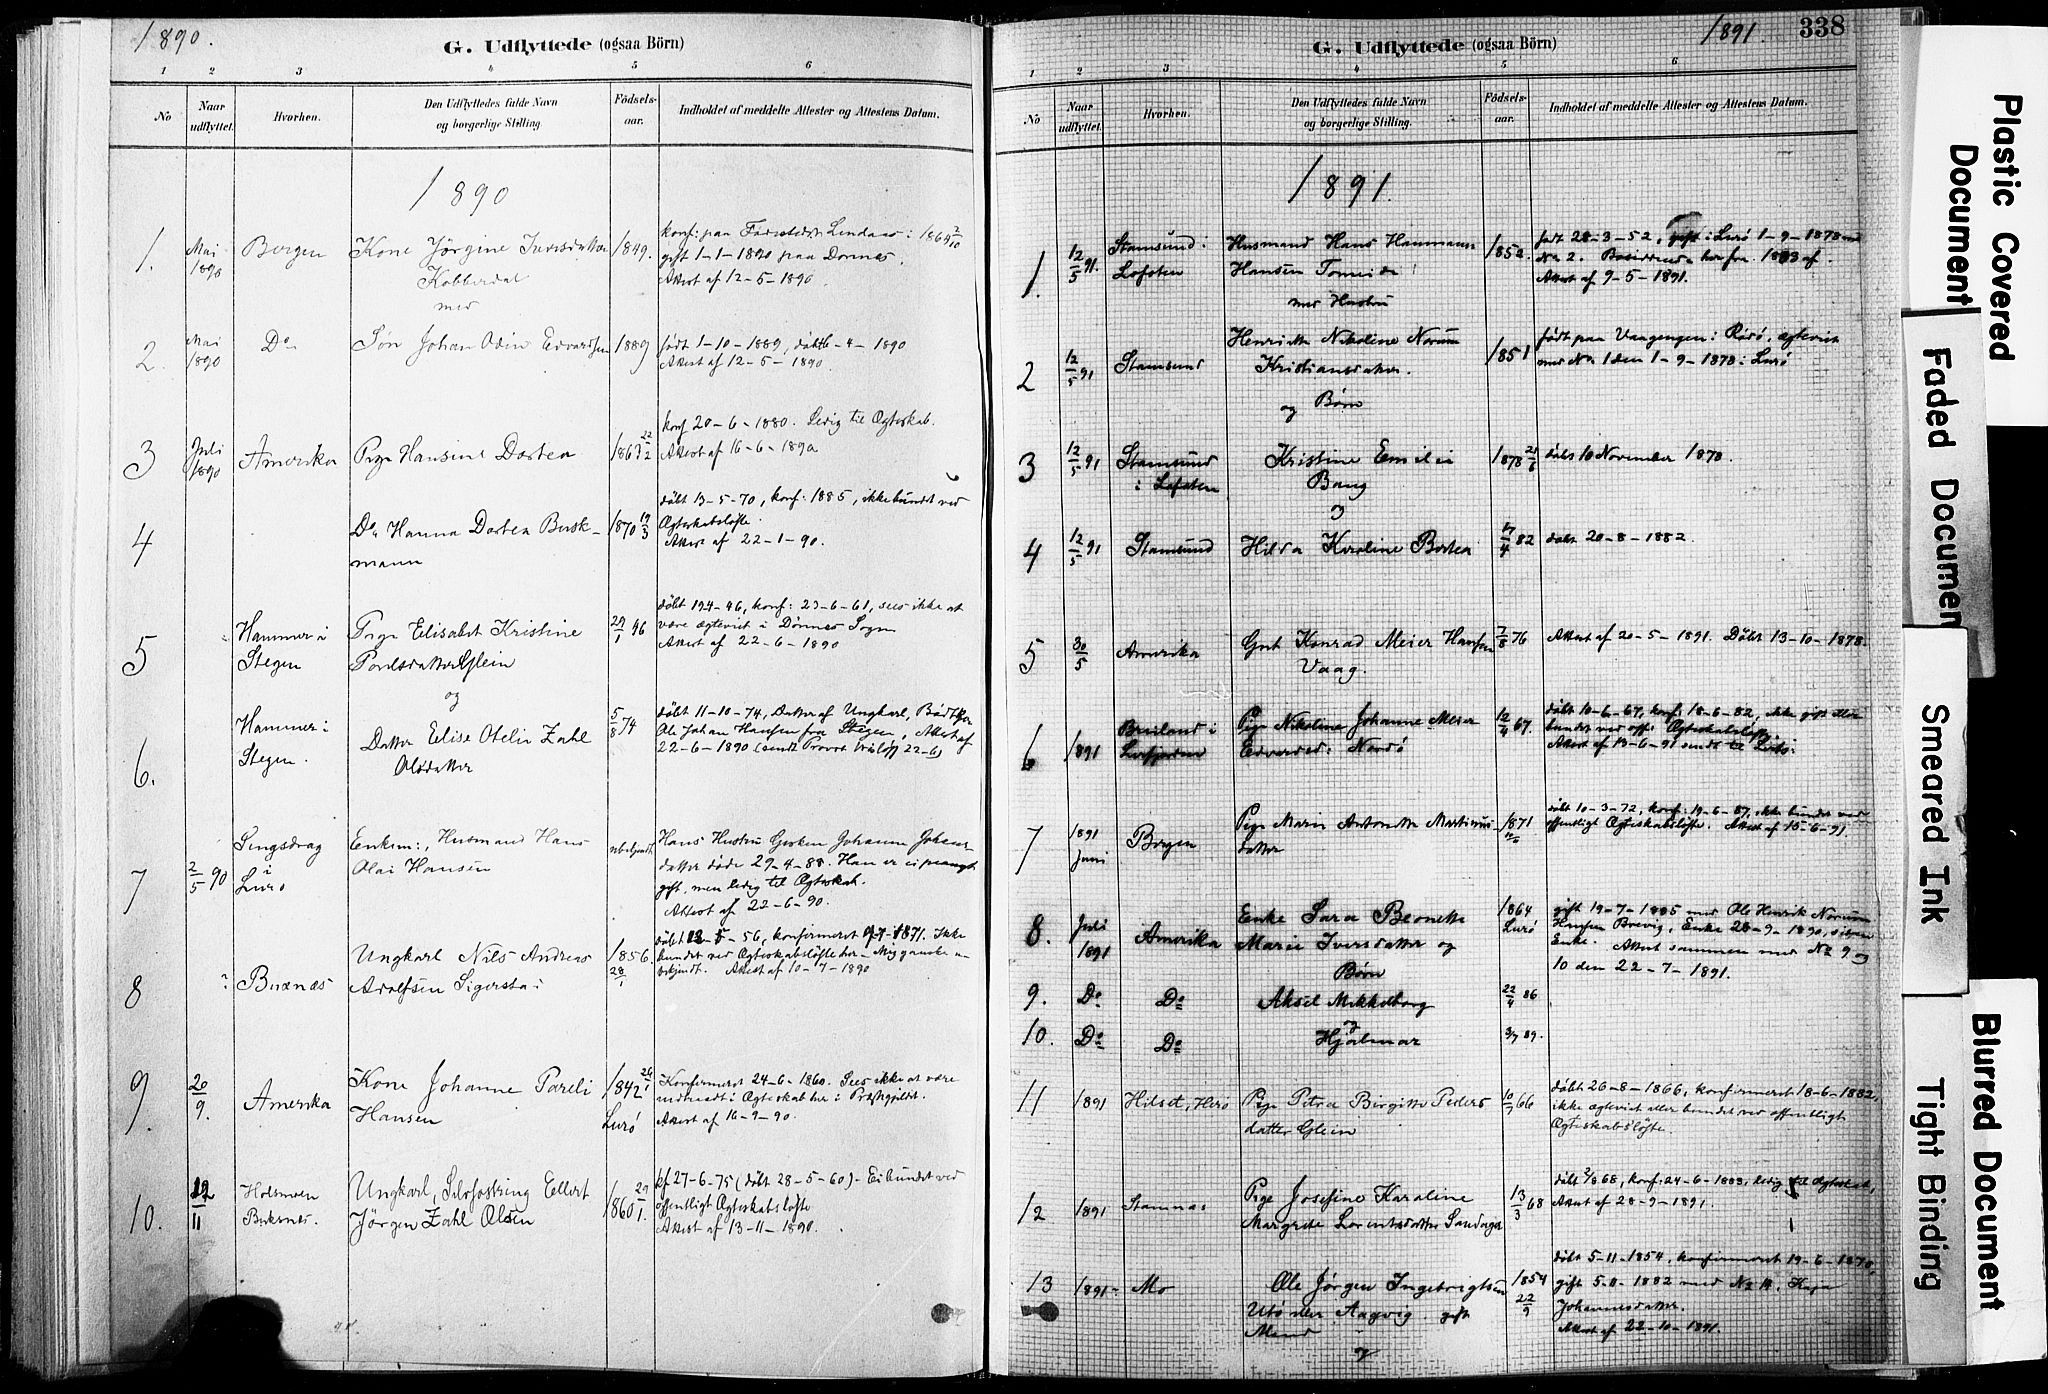 1890.
G. Udflyttede (ogsaa Börn)
1 2 3 4 5 6
No
Naar udflyttet.
Hvorhen.
Den Udflyttedes fulde Navn
og borgerlige Stilling.
Födsels-
aar.
Indholdet af meddelte Attester og Attestens Datum.
1890
1. Mai 1890 Bergen Kone Jörgine Iversdatter 1849.
Kobberdal
med
gift 1-1-1890 paa Dønnes.
Attest af 12-5-1890.
2. Mai 1890 Do Søn Johan Odin Edvardsen 1889
født 1-10-1889, døbt 6-4-1890
Attest af 12-5-1890.
3 Juli 1890 Amerika Pige Hansine Dortea 1863 22/2
konf 20-6-1880. Ledig til Ægteskab.
Attest af 16-6-1890
4 Do Hanna Dortea Busk- 1870 19/3
mann
døbt 13-5-70, konf: 1885, ikke bundet ved
Ægteskabsløfte.
Attest af 22-1-90.
5 Hammer i
Stegen
Pige Elisabet Kristine 29/1 46
Povelsdatter Glein
og
døbt 19-4-46, konf: 23-6-61, sees ikke at
være ægteviet i Dønnes Sogn
Attest af 22-6-1890
6. Hammer i
Stegen.
Datter Elise Otelie Zahl 5/8 74
Olsdatter
døbt 11-10-74, Datter af Ungkarl,
Ole Johan Hansen fra Stegen, Attest af
22-6-1890
7 2/5 90 Lurö
Enkem:, Husmand Hans
Olai Hansen
ubekjendt
Hans Hustru Johanne
datter døde 29-4-88. Han er ei paanyt
gift, men ledig til Ægteskab.
Attest af 22-6-90.
8 Buxnæs
Ungkarl Nils Andreas 1856.
Adolfsen 28/1
56, konfirmeret 1871. Ikke
bundet ved Ægteskabsløfte her - Mig ganske u-
bekjendt. Attest af 10-7-1890
9. 20/9. Amerika
Kone Johanne Pareli 1842
Hansen Lurø
Konfirmeret 24-6-1860. Sees ikke at være
indtraadt i Ægteskab her i Præstegjeldet.
Attest af 16-9-90.
10. 12/11
Buksnes.
Ungkarl, Ellert
Jørgen Zahl Olsen 1860 29/1.
kf 27-6-75 (døbt 28-5-60) - Ei bundet ved
offentligt Ægteskabsløfte
Attest af 13-11-1890.
1891 338
G. Udflyttede (ogsaa Börn)
1 2 3 4 5 6
No
Naar udflyttet.
Hvorhen.
Den Udflyttedes fulde Navn
og borgerlige Stilling.
Födsels-
aar.
Indholdet af meddelte Attester og Attestens Datum.
1891.
1. 12/5 91. Stamsund i
Lofoten
Husmand Hans Hanmann 1852.
Hansen
med Hustru
født 28-3-52, gift i Lurö 1-9-1878 med
No 2. her fra 1883 af.
Attest af 9-5-1891.
2 12/5 91 Stamsund
Henrikke Nikoline Norum 1851
Kristiansdatter.
og Børn
født paa i Rödö, ægteviet
med No 1 den 1-9-1878 i Lurö
3 12/5 91 Stamsund
i Lofoten
Kristine Emilie 1878
Bang
døbt 10 November 1878.
4 12/5 91 Stamsund Hilda Karoline Dortea 17/4 82 døbt 20-8-1882
5 30/5 Amerika
Gut Konrad Meier Hansen 7/8 76
Vaag.
Attest af 20-5-1891. Døbt 13-10-1878.
6 1891
Pige Nikoline Johanne Meier 12/4 67.
Edvardsd: Nordö
døbt 10-6-67, konf: 18-6-82, ikke gift eller
bundet ved off: Ægteskabsløfte.
Attest af 13-6-91 sendt til
7 1891
Juni
Bergen
Pige Marie Antonette Martinus- 1871
datter
døbt 10-3-72, konf: 19-6-87, ikke bundet ved
offentligt Ægteskabsløfte. Attest af 15-6-91
8. Juli
1891
Amerika
Enke Sara Beonette 1864
Marie Iversdatter og Lurö
Børn
gift 19-7-1885 med Ole Henrik Norum
Hansen Brevig, Enke 28-9-1890, siden
Enke. Attest sammen med No 9 og
10 den 22-7-1891.
9. Do Do Aksel Mikkelborg 22/4 86
og
10. Do Do Hjalmar 3/7 89.
11 1891 Hilset, Herö
Pige Petra Birgitte Peders 10/7 66
datter Glein
døbt 26-8-1866, konfirmeret 18-6-1882,
ikke ægteviet eller bundet ved offentligt
Ægteskabsløfte.
12 1891 Stamnes
Pige Josefine Karoline 13/3 68
Margrete Lorentsdatter
døbt 68, konf: 24-6-1883, ledig til Ægteskab,
Attest af 28-9-1891.
13 1891- Mo
Ole Jørgen Ingebrigtsen 1854
Utö eller Aagvig. gift 22/9
Mand
døbt 5-11-1854, konfirmeret 19-6-1870,
gift 5-11-1882 med No 14,
Johannesdatter.
Attest af 22-10-1891.
Plastic Covered
Document
Faded Document
Smeared Ink
Blurred Document
Tight Binding